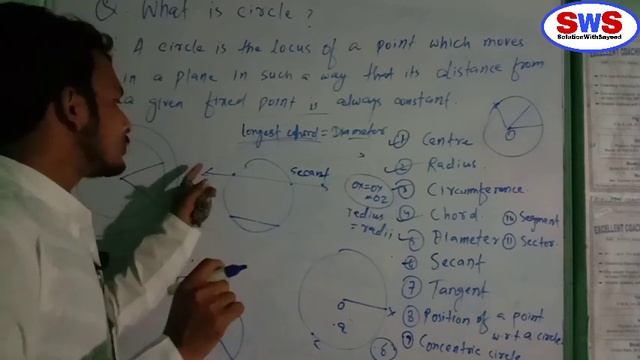 Q. What is circle?
A circle is the locus of a point which moves
in a plane in such a way that its distance from
a given fixed point is always constant.
Longest chord = Diameter
① Centre
② Radius
③ Circumference
④ Chord
⑤ Diameter
⑥ Secant
⑦ Tangent
⑧ Position of a point
w.r.t a circle
⑨ Concentric circle
⑩ Segment
⑪ Sector
Secant
OX=OY
=OZ
radius
=radii
O
O
SWS
SolutionWithSayeed